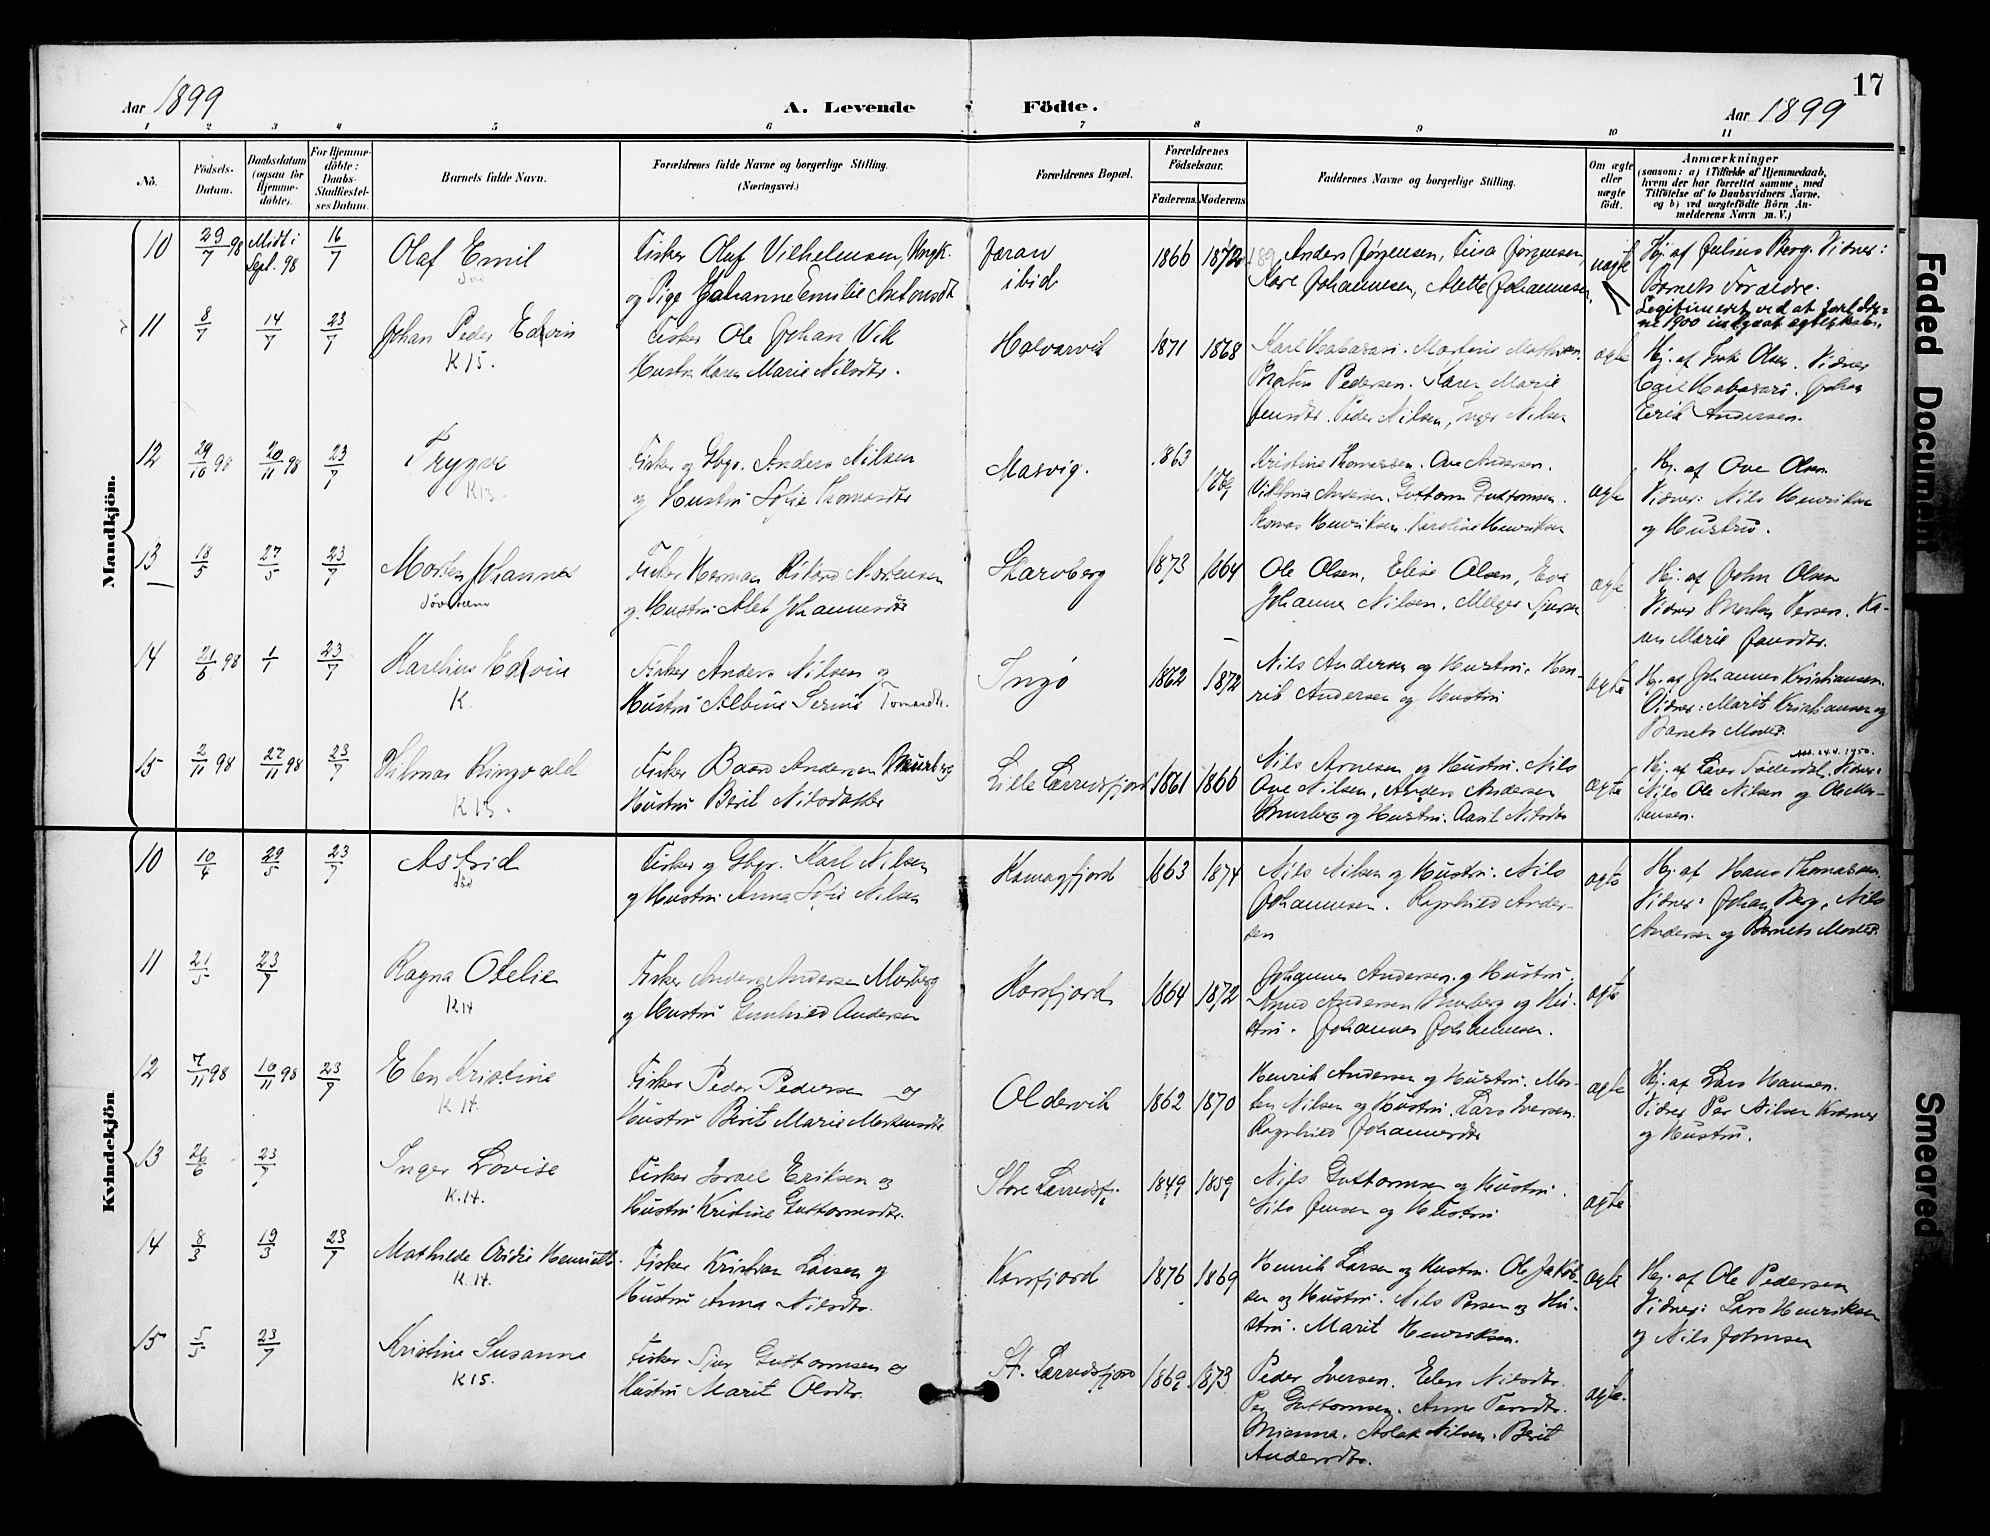 17
Aar 1899
A. Levende Födte.
Aar 1899
1 2 3 4 5 6 7 8 9 10 11
No.
Födsels-Datum.
Daabsdatum (ogsaa for Hjemme-döbte).
For Hjemme-döbte: Daabs-Stadfæstel-ses Datum.
Barnets fulde Navn.
Forældrenes fulde Navne og borgerlige Stilling.
(Næringsvei.)
Forældrenes Bopæl.
Forældrenes Födselsaar.
Faderens. Moderens.
Faddernes Navne og borgerlige Stilling.
Om ægte eller uægte födt.
Anmærkninger
(saasom: a) i Tilfælde af Hjemmedaab,
hvem der har forrettet samme, med
Tilföielse af to Daabsvidners Navne,
og b) ved uægtefödte Börn An-
melderens Navn m. V.)
Mandkjön.
10 29/7 98 Midt i Sept. 98 16/7 Olaf Emil
Fisker Oluf Vilhelmsen, Ungk.
og Pige Johanne Emilie Antonsdt
Jaran
ibid
1866 1872
Anders Jørgensen, Lina Jørgensen,
Kare Johannesen, Mette Johannesen,
uægte
Hj. af Julius Berg. Vidner:
Barnets Forældre.
Legitimeret ved at forældre-
ne 1900 indgaat ægteskab.
11 8/7 14/7 23/7 Johan Peder Edvin
K15.
Fisker Ole Johan Vik
Hustru Karen Marie Nilsdtr.
Halvarvik
1871 1868
Pedersen. Karen Marie
Jensdtr. Peder Nilsen, Inger Nilsen
ægte
Hj. af Olsen. Vidner
Johan
Erik Andersen.
12 29/10 98 20/11 98 23/7 Trygve
K13.
Fisker og Gbgr. Anders Nilsen
og Hustru Sofie Thomasdtr
Masvig.
1863
1869
Kristine Thomassen. Ove Andersen.
Viktoria Andersen. Guttorm Guttormsen.
Thomas Henriksen, Karoline Henriksen
ægte
Hj. af Ove Olsen.
Vidner: Nils Henriksen
og Hustru.
13 18/5 27/5 23/7 Morten Johannes
Fisker Herman Rikard Mortensen
og Hustru Alet Johannesdtr
Skarvberg
1873 1864
Ole Olsen, Elise Olsen, Eva
Johanne Nilsen.
ægte
Hj. af John Olsen
Vidner Morten Persen. Ka-
ren Marie Jansdtr.
14 21/6 98 1/1 23/7 Karelius Edvin
K.
Fisker Anders Nilsen og
Hustru Albine Serine Tomasdtr.
Ingø
1862 1872
Nils Andersen og Hustru. Hen-
rik Andersen og Hustru
ægte
Hj. af Johannes Kristiansen.
Vidner: Marit Kristiansen og
Barnets Moder.
15 2/11 98 27/11 98 23/7 Hilmar Ringvald
K15.
Fisker Baard Andersen Murberg
Hustru Berit Nilsdatter
Lille Lerredsfjord
1861 1866
Nils Arnesen og Hustru. Nils
Ove Nilsen, Anders Andersen
Murberg og Hustru. Nilsdtr
ægte
Att. 24.4.1950.
Hj. af Lars Vidner:
Nils Ole Nilsen og Ole Mor-
tensen.
Kvindekjön.
10 10/4 29/5 23/7 Astrid
død
Fisker og Gbgr. Karl Nilsen
og Hustru Anna Sofie Nilsen
Komagfjord
1863 1874
Nils Nilsen og Hustru. Nils
Johannesen. Ragnhild Ander-
sen
ægte
Hj. af Hans Thomassen.
Vidner: Johan Berg, Nils
Andersen og Barnets Moder.
11 21/5 23/7 Ragna Otelie
K14
Fisker Anders Andersen Murberg
og Hustru Gunhild Andersen
Korsfjord
1864 1872
Johannes Andersen og Hustru.
Andersen Murberg og Hu-
stru. Johannes Johannesen.
ægte
12 7/11 98 10/11 98 23/7 Elen Kristine
K.14.
Fisker Peder Pedersen og
Hustru Berit Marie Mortensdtr
Oldervik
1862 1870
Henrik Andersen og Hustru. Mor-
ten Nilsen og Hustru. Lars Iversen.
Ragnhild Johannesdtr
ægte
Hj. af Lars Hansen.
Vidner Per Nilsen Kræmer
og Hustru.
13 26/6 23/7 Inger Lovise
K.14.
Fisker Israel Eriksen og
Hustru Kristine Guttormsdtr.
Store Lerredsfj.
1849 1859
Nils Guttormsen og Hustru.
Nils Jensen og Hustru
ægte
14 8/3 19/3 23/7 Mathilde Ovidie Henriette
K.14.
Fisker Kristian Larsen og
Hustru Anna Nilsdtr.
Korsfjord
1876 1869
Henrik Larsen og Hustru. Ole Jakob-
sen og Hustru. Nils Persen og Hu-
stru. Marit Henriksen.
ægte
Hj. af Ole Pedersen
Vidner: Lars Henriksen
og Nils Johnsen
15 5/5 23/7 Kristine Susanne
K15.
Fisker Sjur Guttormsen og
Hustru Marit Olsdtr.
St. Lerredsfjord
1869 1873
Peder Iversen. Elen Nilsdtr.
Per Guttormsen. Anne Persdtr.
Aslak Nilsen. Berit
Andersdtr.
ægte.
Faded Document
Smeared